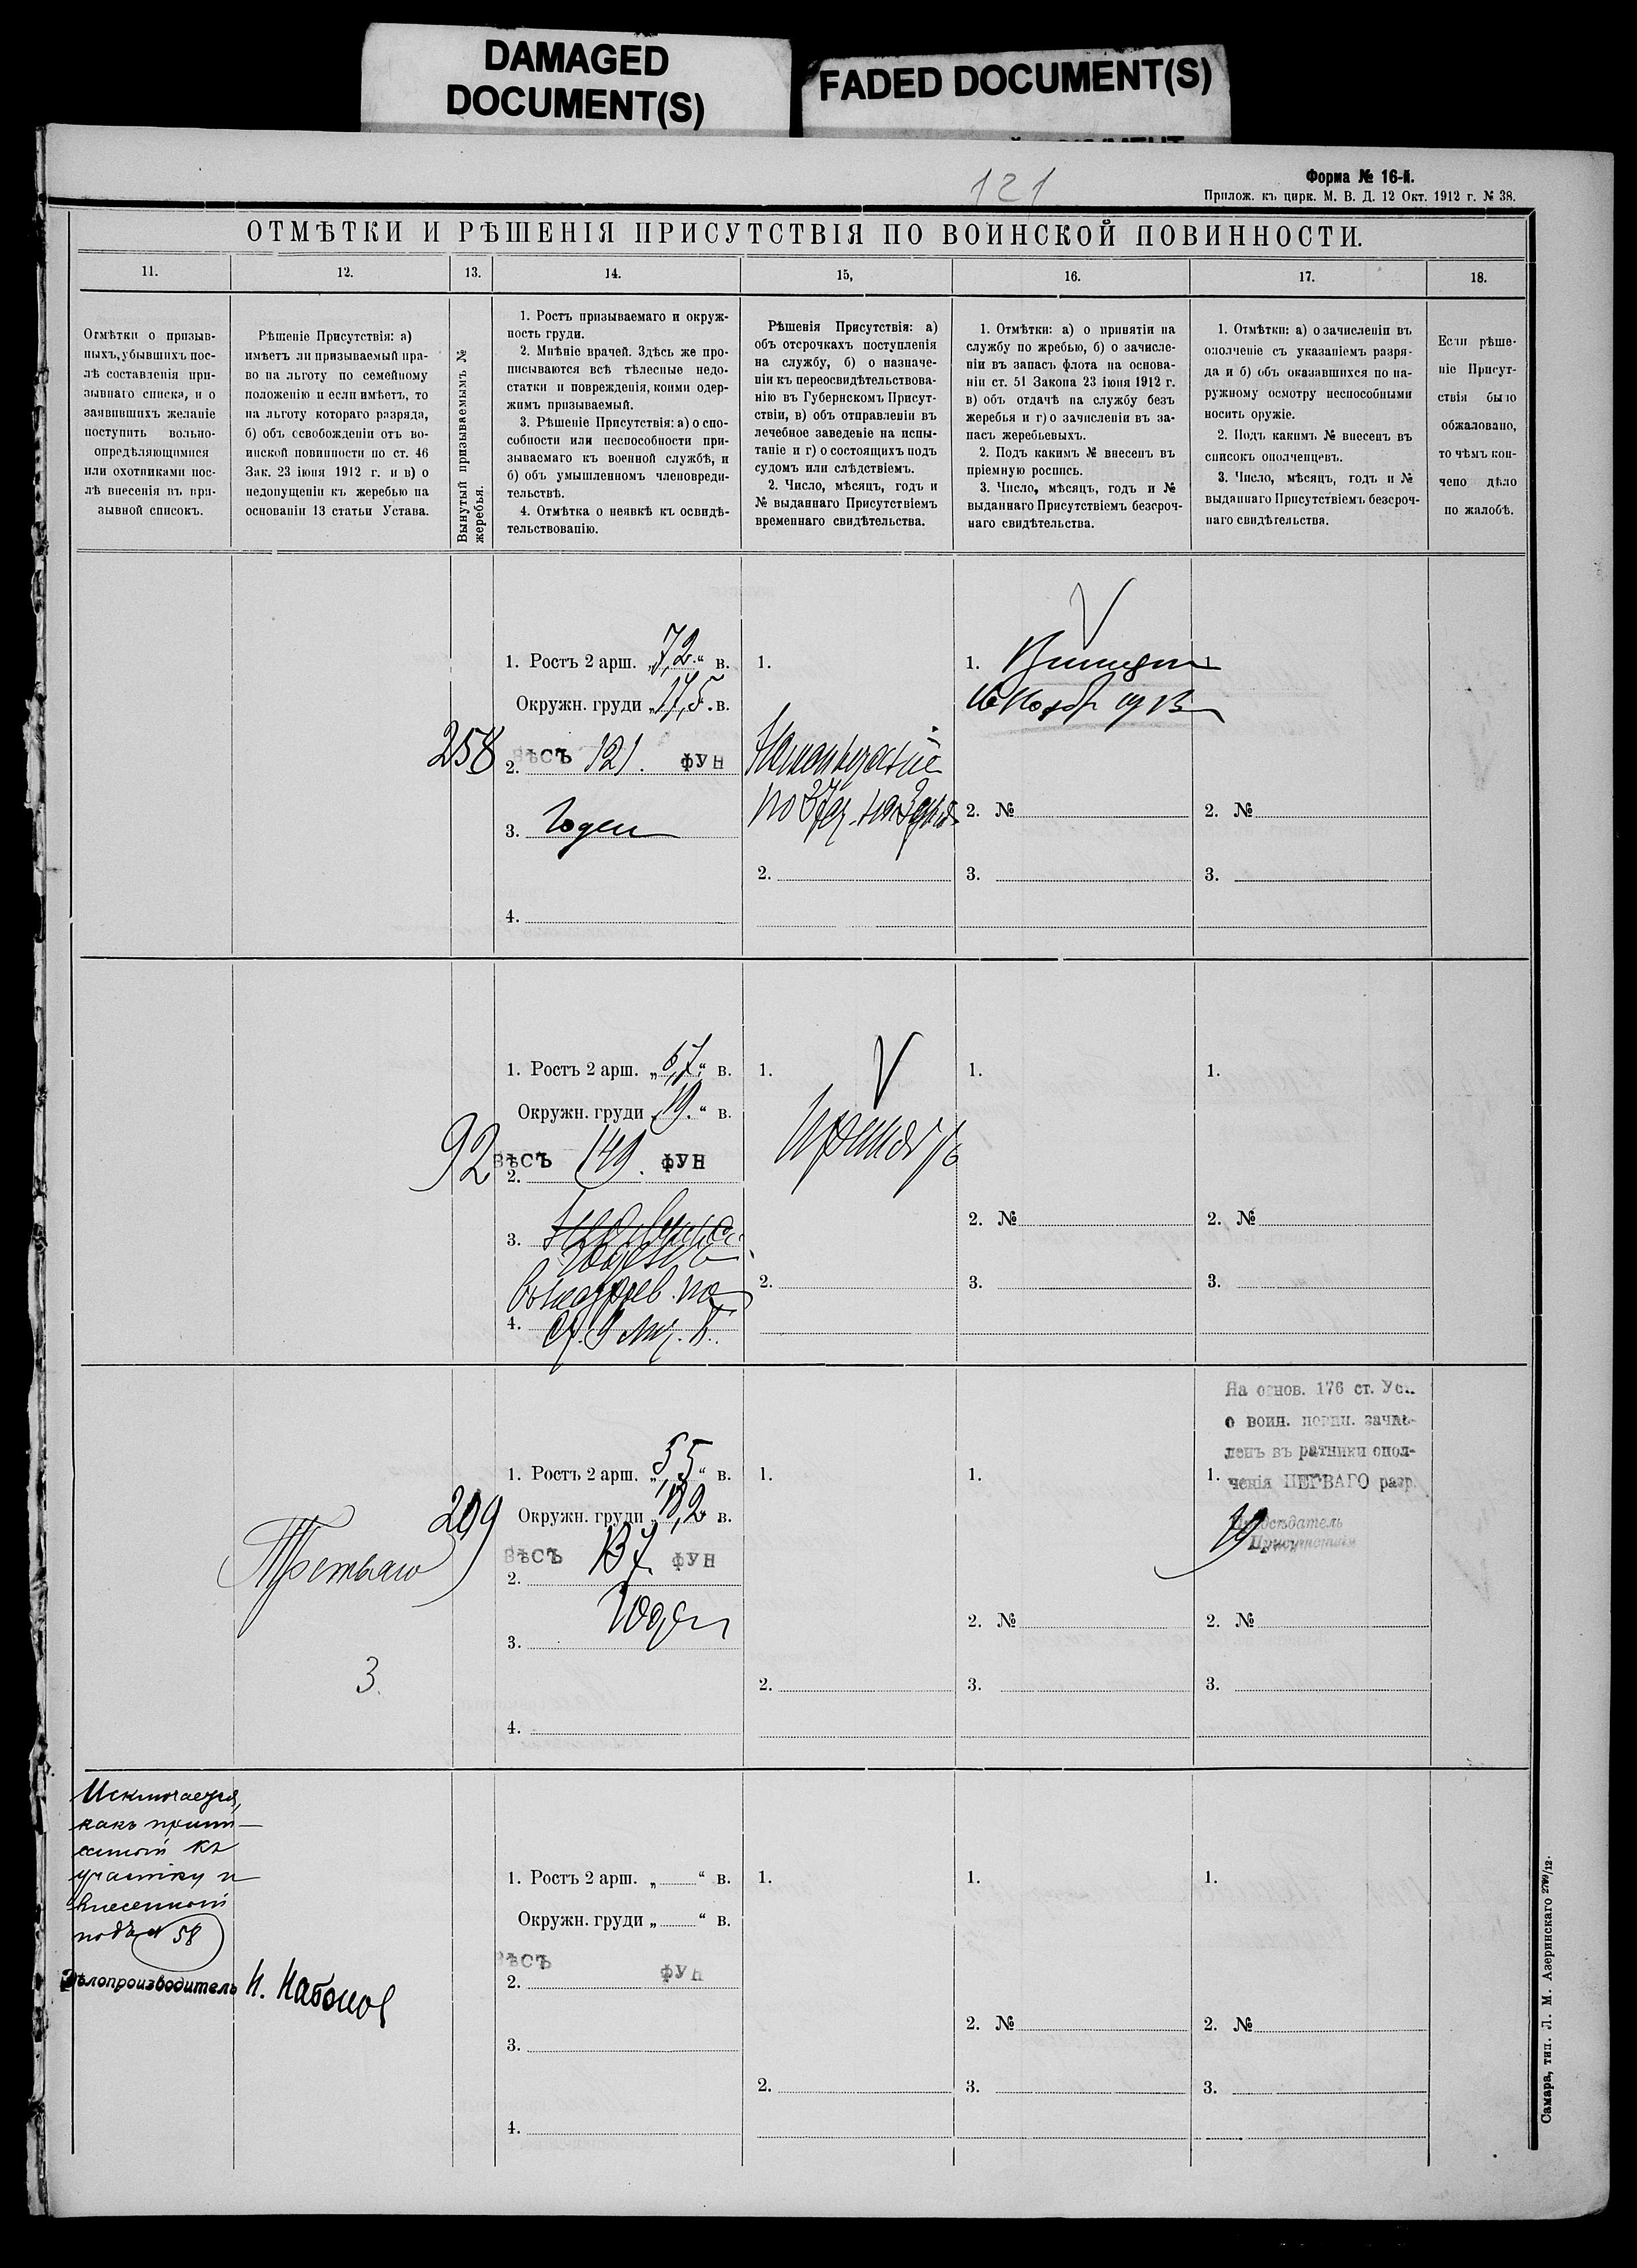 DAMAGED
DOCUMENT(S)
FADED DOCUMENT(S)
121
Форма № 16-й.
Прилож. къ цирк. М. В. Д. 12 Окт. 1912 г. № 38.
ОТМѢТКИ И РѢШЕНІЯ ПРИСУТСТВІЯ ПО ВОИНСКОЙ ПОВИННОСТИ.
11.
12.
13.
14.
15,
16.
17.
18.
Отмѣтки о призыв-
ныхъ, убывшихъ пос-
лѣ составленія при-
зывнаго списка, и о
заявившихъ желаніе
поступить вольно-
опредѣляющимися
или охотниками пос-
лѣ внесенія въ при-
зывной списокъ.
Рѣшеніе Присутствія: а)
имѣетъ ли призываемый пра-
во на льготу по семейному
положенію и если имѣетъ, то
на льготу котораго разряда,
б) объ освобожденіи отъ во-
инской повинности по ст. 46
Зак. 23 іюня 1912 г. и в) о
недопущеніи къ жеребью на
основаніи 13 статьи Устава.
Вынутый призываемымъ №
жеребья.
1. Ростъ призываемаго и окруж-
ность груди.
2. Мнѣніе врачей. Здѣсь же про-
писываются всѣ тѣлесные недо-
статки и поврежденія, коими одер-
жимъ призываемый.
3. Рѣшеніе Присутствія: а) о спо-
собности или неспособности при-
зываемаго къ военной службѣ, и
б) объ умышленномъ членовреди-
тельствѣ.
4. Отмѣтка о неявкѣ къ освидѣ-
тельствованію.
Рѣшенія Присутствія: а)
объ отсрочкахъ поступленія
на службу, б) о назначе-
ніи къ переосвидѣтельствова-
нію въ Губернскомъ Присут-
ствіи, в) объ отправленіи въ
лечебное заведеніе на испы-
таніе и г) о состоящихъ подъ
судомъ или слѣдствіемъ.
2. Число, мѣсяцъ, годъ и
№ выданнаго Присутствіемъ
временнаго свидѣтельства.
1. Отмѣтки: а) о принятіи на
службу по жребью, б) о зачисле-
ніи въ запасъ флота на основа-
ніи ст. 51 Закона 23 іюня 1912 г.
в) объ отдачѣ на службу безъ
жеребья и г) о зачисленіи въ за-
пасъ жеребьевыхъ.
2. Подъ какимъ № внесенъ въ
пріемную роспись.
3. Число, мѣсяцъ, годъ и №
выданнаго Присутствіемъ безсроч-
наго свидѣтельства.
1. Отмѣтки: а) о зачисленіи въ
ополченіе съ указаніемъ разря-
да и б) объ оказавшихся по на-
ружному осмотру неспособными
носить оружіе.
2. Подъ какимъ № внесенъ въ
списокъ ополченцевъ.
3. Число, мѣсяцъ, годъ и №
выданнаго Присутствіемъ безсроч-
наго свидѣтельства.
Если рѣше-
ніе Присут-
ствія было
обжаловано,
то чѣмъ кон-
чено дѣло
по жалобѣ.
258
1. Ростъ 2 арш. „7,2“ в.
Окружн. груди „17,5. в.
2. ВѢСЪ 121. ФУН
3. Годен
4.
1.
2.
1.
2. №
3.
1.
2. №
3.
92
1. Ростъ 2 арш. „6,7“ в.
Окружн. груди „19.“ в.
ВѢСЪ 149. ФУН
2.
3.
4.
1.
2.
1.
2. №
3.
1.
2. №
3.
Третьяго
3.
209
1. Ростъ 2 арш. „5,5“ в.
Окружн. груди 18,2 в.
ВѢСЪ 137 ФУН
2.
Годен
3.
4.
1.
2.
1.
2. №
3.
На основ. 176 ст. Уст.
о воин. повин. зачис-
ленъ въ ратники опол-
1. ченія ПЕРВАГО разр.
Предсѣдатель
Присутствія
2. №
3.
Исключается,
какъ припи-
санный къ
участку и
внесенный
подъ № 58
Дѣлопроизводитель
1. Ростъ 2 арш. „ “ в.
Окружн. груди „ “ в.
ВѢСЪ ФУН
2.
3.
4.
1.
2.
1.
2. №
3.
1.
2. №
3.
Самара, тип. Л. М. Азеринскаго 2799/12.